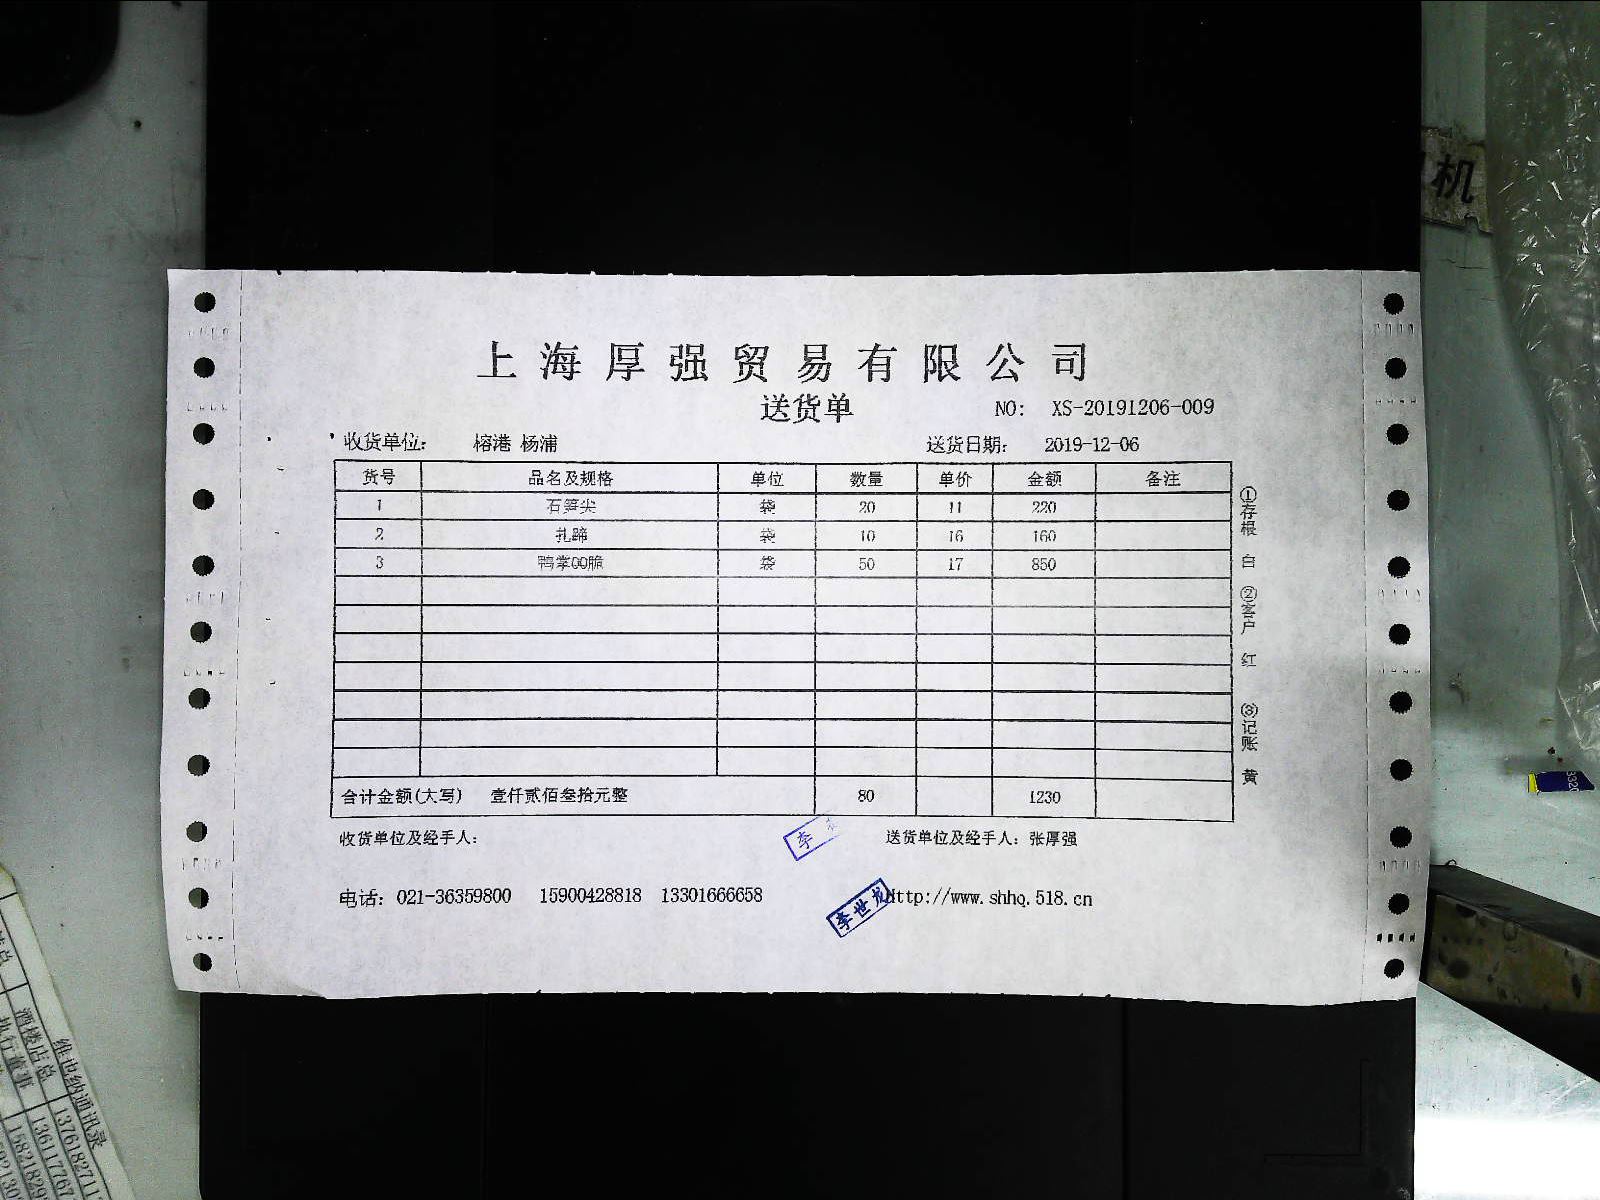 上海厚强贸易有限公司
送货单 NO: XS-20191206-009
收货单位: 榕港 杨浦 送货日期: 2019-12-06
货号 品名及规格 单位 数量 单价 金额 备注
1 石笋尖 袋 20 11 220
2 扎蹄 袋 10 16 160
3 鸭掌QQ脆 袋 50 17 850
合计金额(大写) 壹仟贰佰叁拾元整 80 1230
收货单位及经手人: 李 送货单位及经手人: 张厚强
电话: 021-36359800 15900428818 13301666658 李世龙 http://www.shhq.518.cn
①存根 白 ②客户 红 ③记账 黄
机
维也纳通讯录
酒楼店总
执行董事